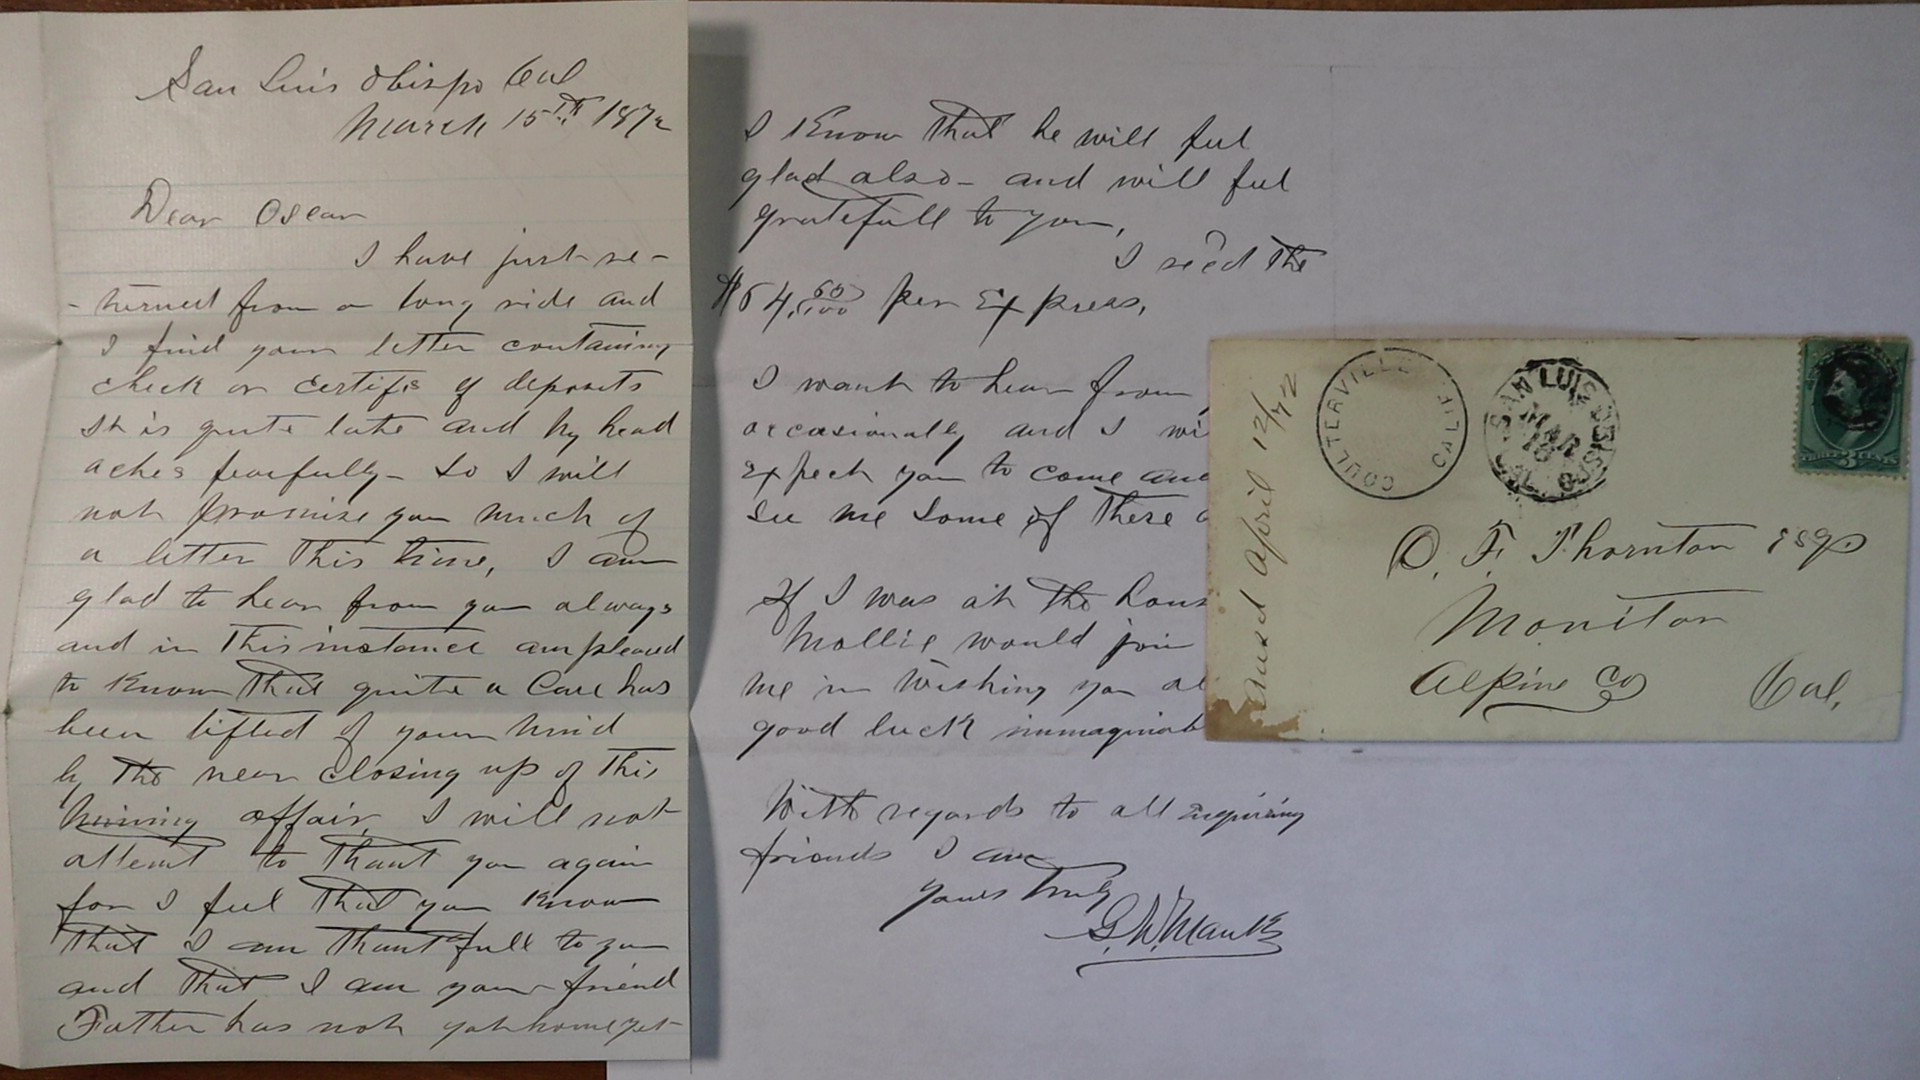 San Luis Obispo Cal
March 15TH 1872
Dear Oscar
I have just re-
-turned from a long ride and
I find your letter containing
check or certifis of deposits
It is quite late and my head
aches fearfully - So I will
not promise you much of
a letter this time, I am
glad to hear from you always
and in this instance am pleased
to know that quite a care has
been lifted of your mind
by the near closing up of this
mining affair, I will not
attemt to thank you again
for I feel that you know
that I am thankfull to you
and that I am your friend
Father has not got home yet-
I know that he will feel
glad also - and will feel
gratefull to you,
I rec'd the
$64.60/100 per Express,
I want to hear from
occasionally and I wi
expect you to come and
see me some of these
If I was at the hous
Mollie would join
me in wishing you al
good luck immaginab
With regards to all inquiring
friends I am
yours truly
G. W. Mauk
Ansd April 12/72
COULTERVILLE CALIF.
SAN LUIS OBISPO CAL.
MAR
18
THREE 3 CENTS
O. F. Thornton Esqr.
Monitor
Alpine Co
Cal,